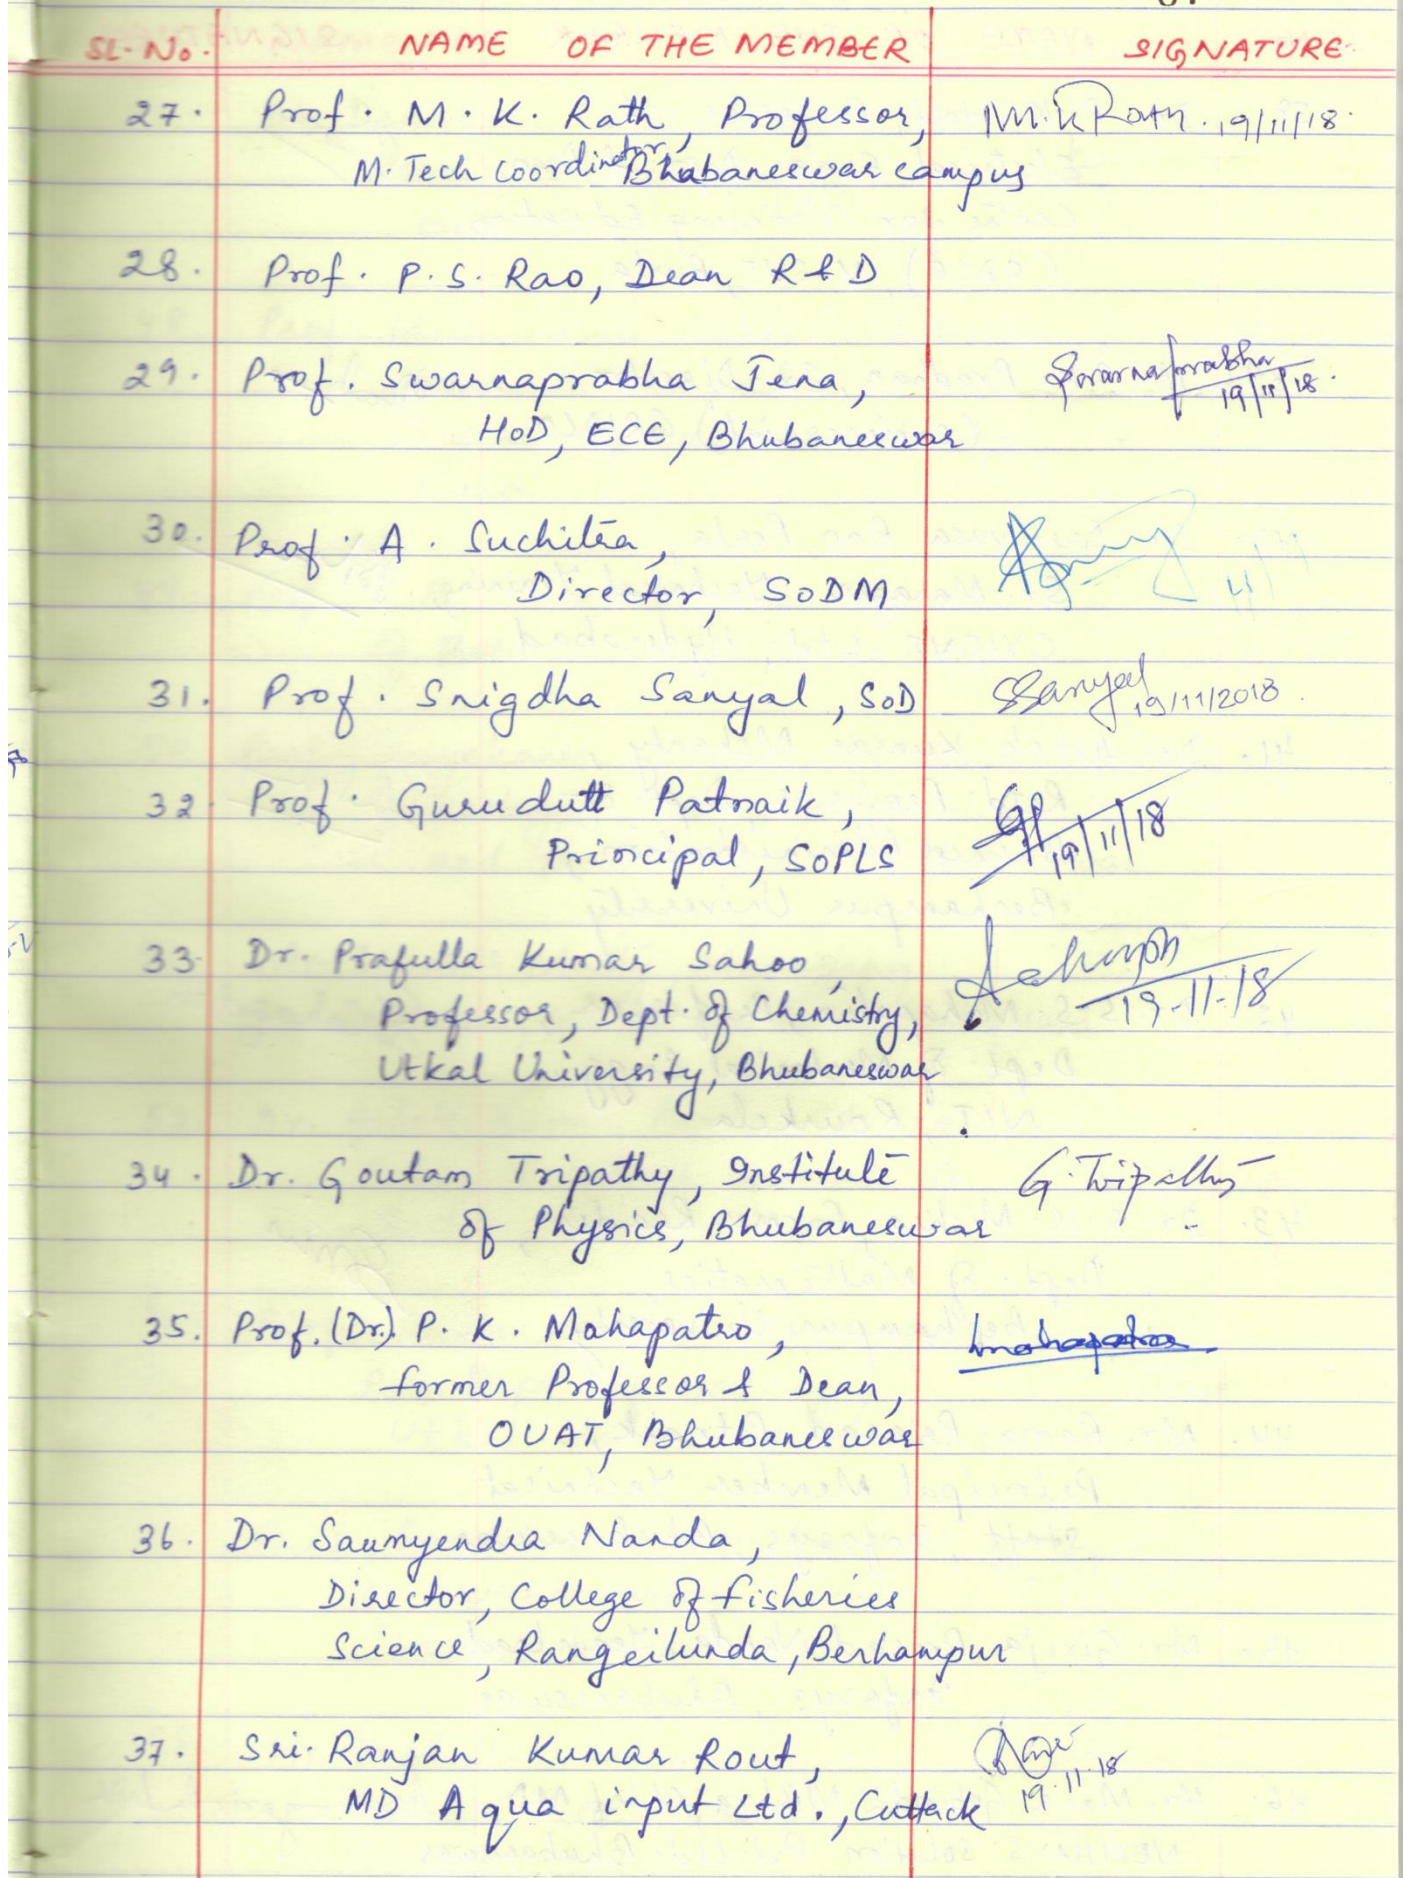 SL. No. NAME OF THE MEMBER SIGNATURE
27. Prof. M. K. Rath, Professor, M.K Rath. 19/11/18.
M. Tech Coordinator, Bhubaneswar campus
28. Prof. P. S. Rao, Dean R & D
29. Prof. Swarnaprabha Jena, Swarnaprabha
19/11/18.
HoD, ECE, Bhubaneswar
30. Prof. A. Suchitra,
Director, SoDM
31. Prof. Snigdha Sanyal, SoD SSanyal
19/11/2018.
32 Prof. Gurudutt Patnaik,
19/11/18
Principal, SoPLS
33. Dr. Prafulla Kumar Sahoo,
Professor, Dept. of Chemistry, 19-11-18
Utkal University, Bhubaneswar
34. Dr. Goutam Tripathy, Institute G. Tripathy
of Physics, Bhubaneswar
35. Prof. (Dr.) P. K. Mahapatro,
former Professor & Dean,
OUAT, Bhubaneswar
36. Dr. Saumyendra Nanda,
Director, College of fisheries
Science, Rangeilunda, Berhampur
37. Sri. Ranjan Kumar Rout,
MD Aqua input Ltd., Cuttack 19.11.18